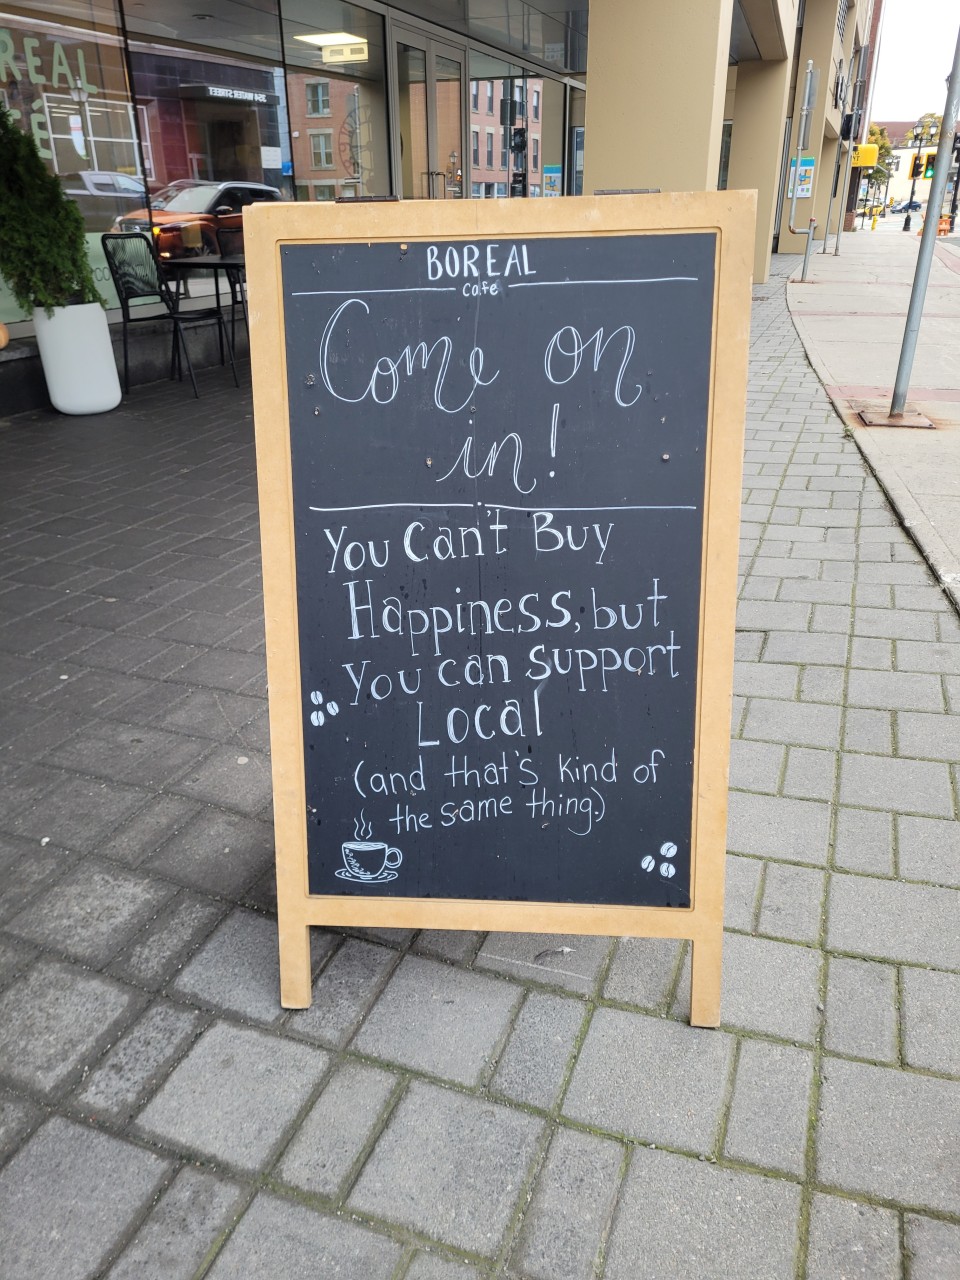 BOREAL
Cafe
Come on
in!
You Can't Buy
Happiness, but
You can support
Local
(and that's kind of
the same thing.)